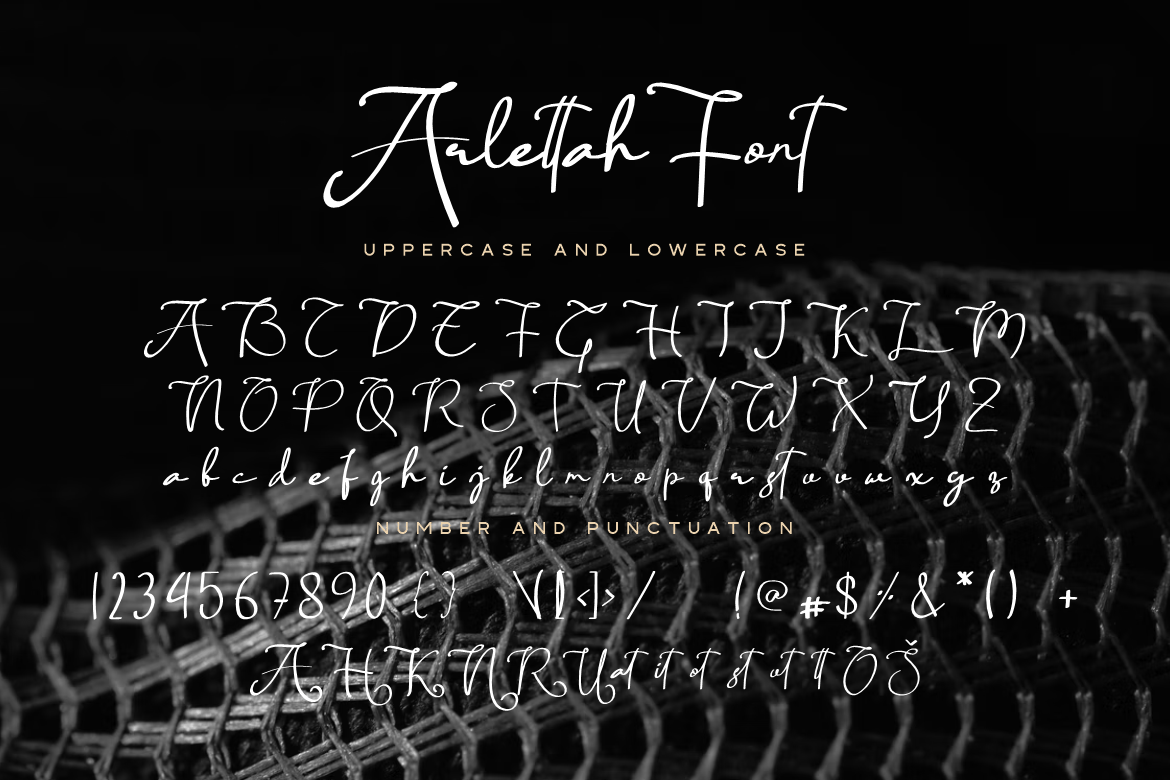 Arlettah Font
UPPERCASE AND LOWERCASE
A B C D E F G H I J K L M
N O P Q R S T U V W X Y Z
a b c d e f g h i j k l m n o p q r s t u v w x y z
NUMBER AND PUNCTUATION
1234567890 { } \ | [ < ] > / ! @ # $ % & * ( ) +
A H K N R U at it ot st ut tt O Š